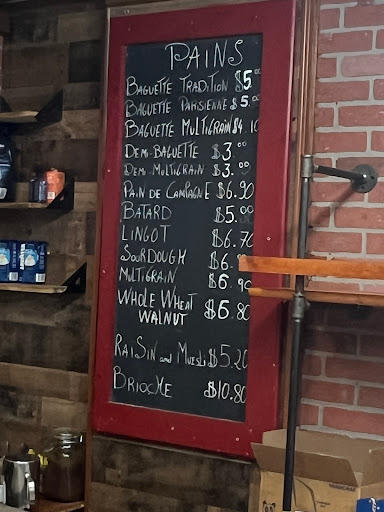 PAINS
BAGUETTE TRADITION $5.00
BAGUETTE PARISIENNE $5.00
BAGUETTE MULTIGRAIN $4.10
DEMI-BAGUETTE $3.00
DEMI-MULTIGRAIN $3.00
PAIN DE CAMPAGNE $6.90
BATARD $5.00
LINGOT $6.70
SOURDOUGH $6.
MULTIGRAIN $6.90
WHOLE WHEAT $6.80
WALNUT
RAISIN and MUESLI $5.20
BRIOCHE $10.80